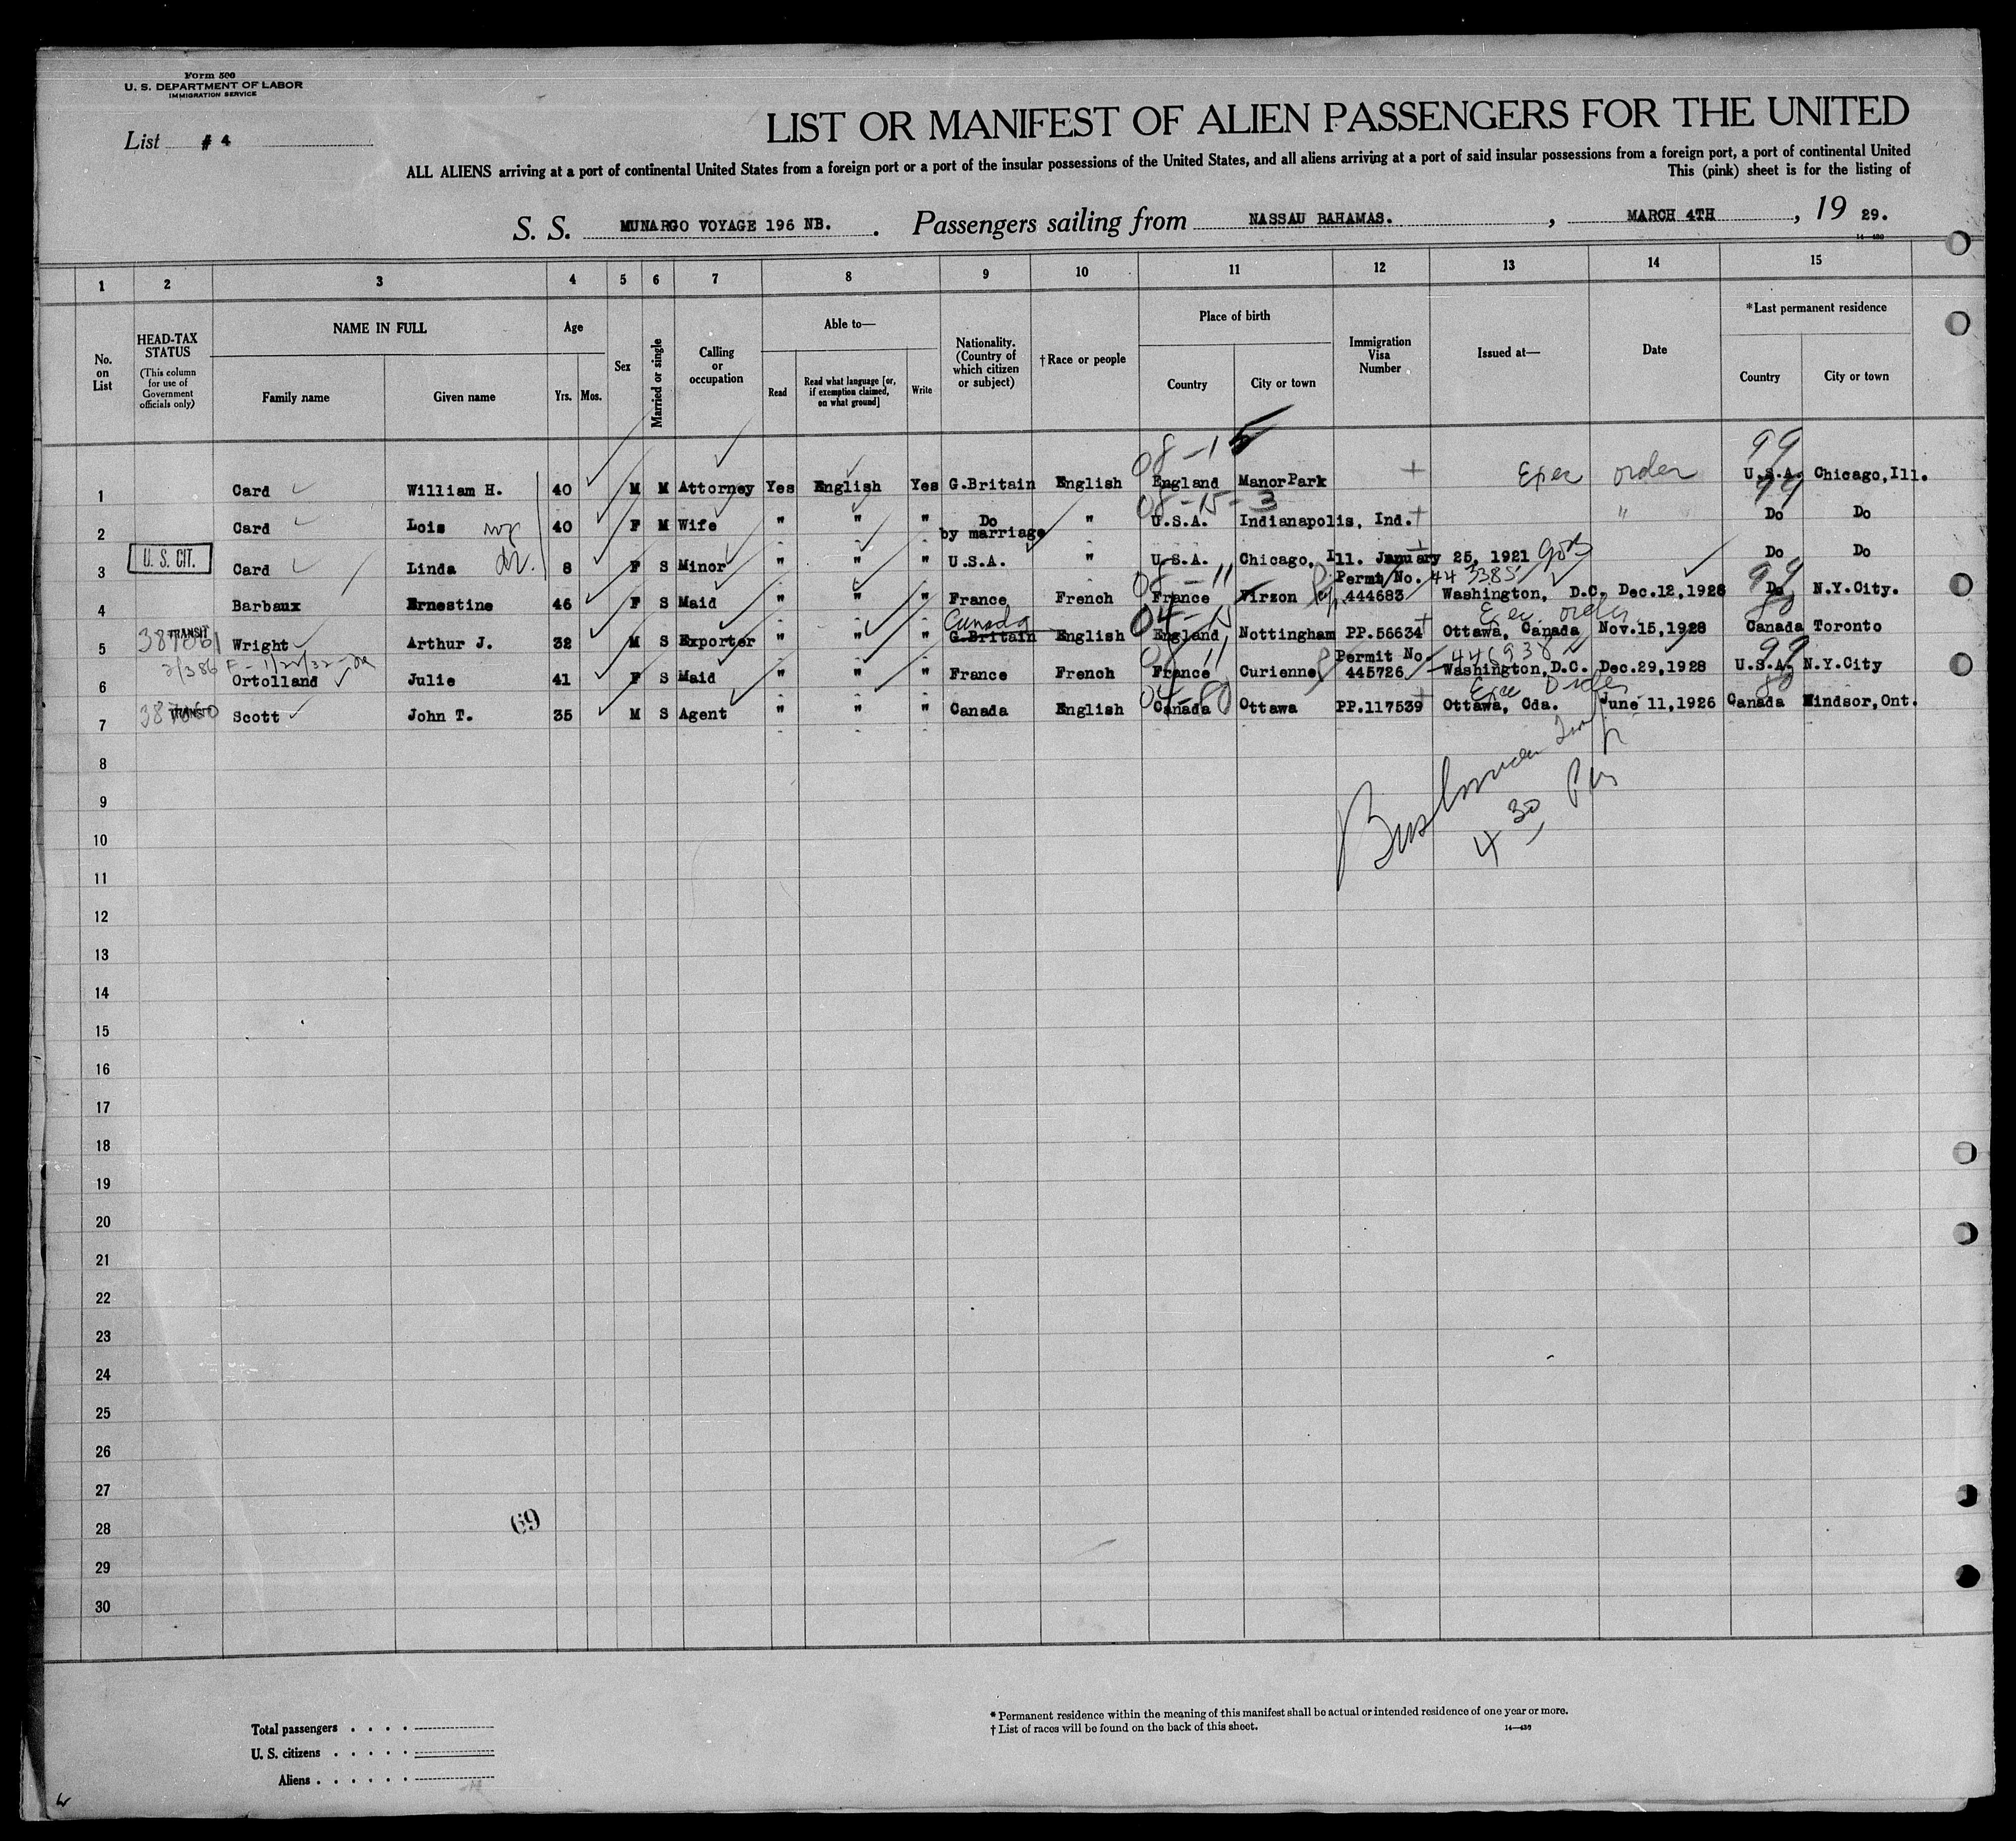 Form 500
U. S. DEPARTMENT OF LABOR
IMMIGRATION SERVICE
List # 4
LIST OR MANIFEST OF ALIEN PASSENGERS FOR THE UNITED
ALL ALIENS arriving at a port of continental United States from a foreign port or a port of the insular possessions of the United States, and all aliens arriving at a port of said insular possessions from a foreign port, a port of continental United
This (pink) sheet is for the listing of
S. S. MUNARGO VOYAGE 196 NB. . Passengers sailing from NASSAU BAHAMAS. , MARCH 4TH , 19 29.
14—430
1 2 3 4 5 6 7 8 9 10 11 12 13 14 15
No. on List
HEAD-TAX STATUS (This column for use of Government officials only)
NAME IN FULL
Family name Given name
Age
Yrs. Mos.
Sex
Married or single
Calling or occupation
Able to—
Read Read what language [or, if exemption claimed, on what ground] Write
Nationality. (Country of which citizen or subject)
†Race or people
Place of birth
Country City or town
Immigration Visa Number
Issued at—
Date
*Last permanent residence
Country City or town
08-15 99
1 Card William H. 40 M M Attorney Yes English Yes G.Britain English England Manor Park Exec order U.S.A. Chicago, Ill.
08-15-3 99
2 Card Lois 40 F M Wife " " " Do by marriage " U.S.A. Indianapolis, Ind. " Do Do
U. S. CIT.
3 Card Linda 8 F S Minor " " " U.S.A. " U.S.A. Chicago, Ill. January 25, 1921 Do Do
08-11 Permit No. 443385 99
4 Barbaux Ernestine 46 F S Maid " " " France French France Virzon 444683 Washington, D.C. Dec.12,1928 Do N.Y.City.
TRANSIT 387861 Canada 04-15 Exec order 80
5 Wright Arthur J. 32 M S Exporter " " " G.Britain English England Nottingham PP.56634 Ottawa, Canada Nov.15,1928 Canada Toronto
2/386 11 Permit No. 446938 99
6 Ortolland Julie 41 F S Maid " " " France French France Curienne 445726 Washington,D.C. Dec.29,1928 U.S.A. N.Y.City
TRANSIT 04-80 Exec Order 80
7 Scott John T. 35 M S Agent " " " Canada English Canada Ottawa PP.117539 Ottawa, Cda. June 11,1926 Canada Windsor,Ont.
8
9
4 30
10
11
12
13
14
15
16
17
18
19
20
21
22
23
24
25
26
27
28
69
29
30
Total passengers . . . .
U. S. citizens . . . . .
Aliens . . . . . .
* Permanent residence within the meaning of this manifest shall be actual or intended residence of one year or more.
† List of races will be found on the back of this sheet.
14—430